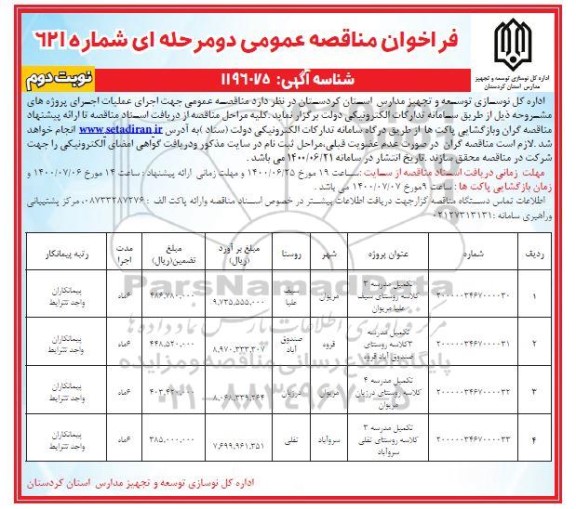 فراخوان مناقصه عمومی دومرحله ای شماره ۶۲۱
اداره کل نوسازی توسعه و تجهیز
مدارس استان کردستان
شناسه آگهی: ۱۱۹۶۰۷۵
نوبت دوم
اداره کل نوسازی توسعه و تجهیز مدارس استان کردستان در نظر دارد مناقصه عمومی جهت اجرای عملیات اجرای پروژه های
مشروحه ذیل از طریق سامانه تدارکات الکترونیکی دولت برگزار نماید. کلیه مراحل مناقصه از دریافت اسناد مناقصه تا ارائه پیشنهاد
مناقصه گران وبازگشایی پاکت ها از طریق درگاه سامانه تدارکات الکترونیکی دولت (ستاد )به آدرس www.setadiran.ir انجام خواهد
شد .لازم است مناقصه گران در صورت عدم عضویت قبلی،مراحل ثبت نام در سایت مذکور ودریافت گواهی امضای الکترونیکی را جهت
شرکت در مناقصه محقق سازند .تاریخ انتشار در سامانه ۱۴۰۰/۰۶/۲۱ می باشد .
مهلت زمانی دریافت اسناد مناقصه از سایت :ساعت ۱۹ مورخ ۱۴۰۰/۰۶/۲۵ و مهلت زمانی ارائه پیشنهاد : ساعت ۱۴ مورخ ۱۴۰۰/۰۷/۰۶ و
زمان بازگشایی پاکت ها : ساعت ۹مورخ ۱۴۰۰/۰۷/۰۷ می باشد .
اطلاعات تماس دستگاه مناقصه گزارجهت دریافت اطلاعات بیشتر در خصوص اسناد مناقصه وارائه پاکت الف : ۰۸۷۳۳۲۸۷۳۷۶، مرکز پشتیبانی
وراهبری سامانه :۰۲۱۲۷۳۱۳۱۳۱
ردیف شماره عنوان پروژه شهر روستا مبلغ برآورد (ریال) مبلغ تضمین(ریال) مدت اجرا رتبه پیمانکار
۱ ۲۰۰۰۰۰۳۴۶۷۰۰۰۰۳۰ تکمیل مدرسه ۳ کلاسه روستای سیف علیا مریوان مریوان سیف علیا ۹,۷۳۵,۵۵۵,۰۰۰ ۴۸۶,۷۸۰,۰۰۰ ۶ماه پیمانکاران واجد شرایط
۲ ۲۰۰۰۰۰۳۴۶۷۰۰۰۰۳۱ تکمیل مدرسه ۳کلاسه روستای صندوق آباد قروه قروه صندوق آباد ۸,۹۷۰,۳۳۳,۳۰۷ ۴۴۸,۵۲۰,۰۰۰ ۶ماه پیمانکاران واجد شرایط
۳ ۲۰۰۰۰۰۳۴۶۷۰۰۰۰۳۲ تکمیل مدرسه ۴ کلاسه روستای درزیان مریوان مریوان درزیان ۸,۰۶۸,۳۳۹,۲۶۴ ۴۰۳,۴۲۰,۰۰۰ ۶ماه پیمانکاران واجد شرایط
۴ ۲۰۰۰۰۰۳۴۶۷۰۰۰۰۳۳ تکمیل مدرسه ۳ کلاسه روستای تفلی سروآباد سروآباد تفلی ۷,۶۹۹,۹۶۱,۳۵۱ ۳۸۵,۰۰۰,۰۰۰ ۶ماه پیمانکاران واجد شرایط
ParsNamadData
مرکز فرآوری اطلاعات پارس نماد داده ها
پایگاه اطلاع رسانی مناقصه و مزایده
۰۲۱-۸۸۳۴۹۶۷۰-۵
اداره کل نوسازی توسعه و تجهیز مدارس استان کردستان